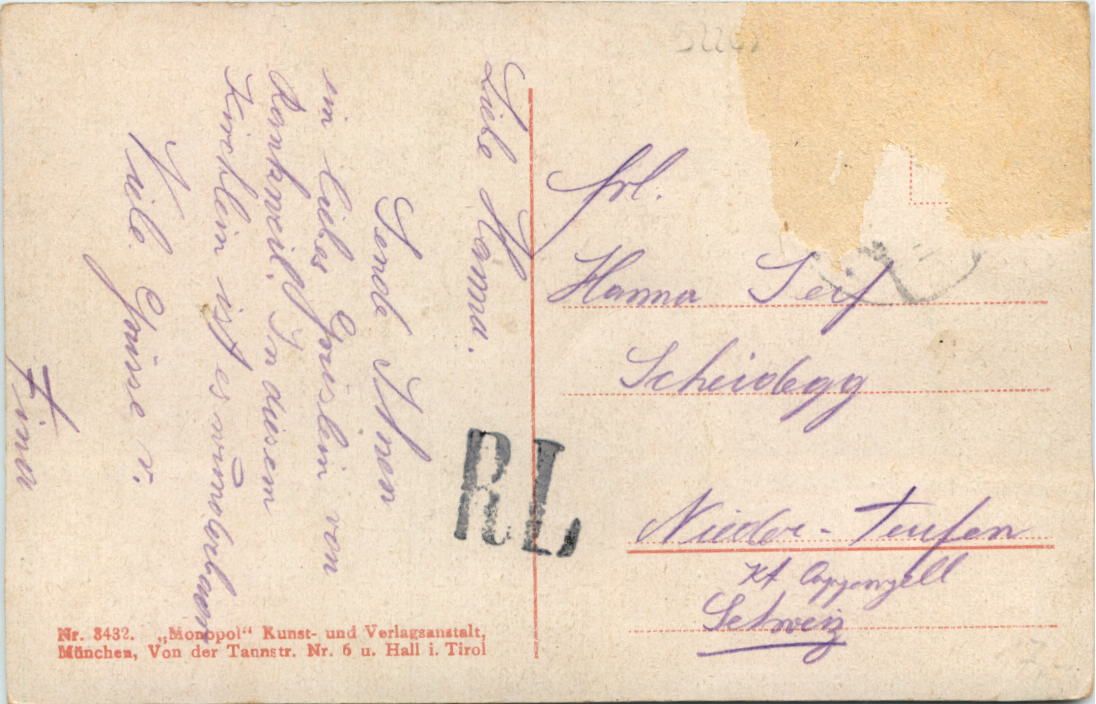 Liebe Hanna.
Sende Ihnen
ein liebes Grüslein von
Rankweil. In diesem
Kirchlein ist es wunderbar
Viele Grüsse v.
Fina
Frl.
Hanna
Scheidegg
Nieder-Teufen
Kt Appenzell
Schweiz
RL
Nr. 3432. „Monopol“ Kunst- und Verlagsanstalt,
München, Von der Tannstr. Nr. 6 u. Hall i. Tirol